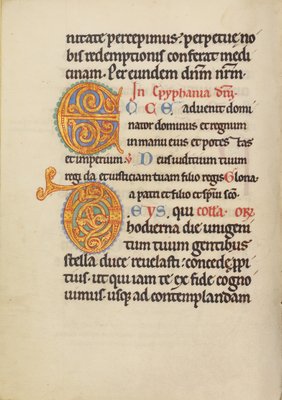 nitate percepimus. perpetue no
bis redemptionis conferat medi
cinam. Per eundem dnm nrm.
In epyphania dni.
ECCE aduenit domi
nator dominus et regnum
in manu eius et potestas
et imperium. V Ds iudicium tuum
regi da et iusticiam tuam filio regis. Gloria
a patri et filio et spiui sco.
DEVS, qui Collā. Oro.
hodierna die unigeni
tum tuum gentibus
stella duce reuelasti. concede ppi
tius. ut qui iam te ex fide cogno
uimus. usq; ad contemplandam